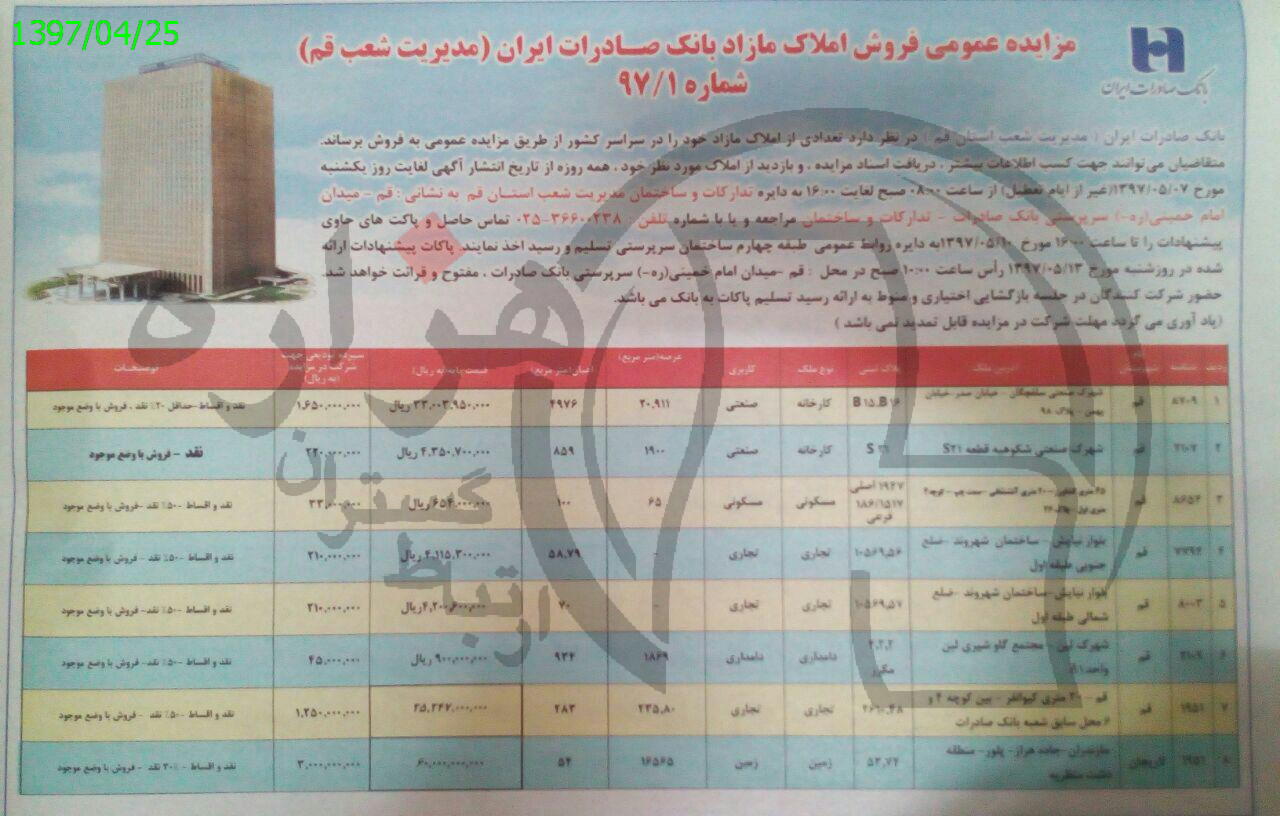 1397/04/25
مزایده عمومی فروش املاک مازاد بانک صادرات ایران (مدیریت شعب قم)
شماره ۹۷/۱
بانک صادرات ایران
بانک صادرات ایران ( مدیریت شعب استان قم ) در نظر دارد تعدادی از املاک مازاد خود را در سراسر کشور از طریق مزایده عمومی به فروش برساند.
متقاضیان می‌توانند جهت کسب اطلاعات بیشتر ، دریافت اسناد مزایده ، و بازدید از املاک مورد نظر خود ، همه روزه از تاریخ انتشار آگهی لغایت روز یکشنبه
مورخ ۱۳۹۷/۰۵/۰۷(غیر از ایام تعطیل) از ساعت ۰۸:۰۰ صبح لغایت ۱۶:۰۰ به دایره تدارکات و ساختمان مدیریت شعب استان قم به نشانی : قم - میدان
امام خمینی(ره-) سرپرستی بانک صادرات - تدارکات و ساختمان مراجعه و یا با شماره تلفن : ۳۶۶۰۰۲۳۸-۰۲۵ تماس حاصل و پاکت های حاوی
پیشنهادات را تا ساعت ۱۶:۰۰ مورخ ۱۳۹۷/۰۵/۱۰به دایره روابط عمومی، طبقه چهارم ساختمان سرپرستی تسلیم و رسید اخذ نمایند. پاکات پیشنهادات ارائه
شده در روزشنبه مورخ ۱۳۹۷/۰۵/۱۳ رأس ساعت ۱۰:۰۰ صبح در محل : قم -میدان امام خمینی(ره-) سرپرستی بانک صادرات ، مفتوح و قرائت خواهد شد.
حضور شرکت کنندگان در جلسه بازگشایی اختیاری و منوط به ارائه رسید تسلیم پاکات به بانک می باشد.
(یاد آوری می گردد مهلت شرکت در مزایده قابل تمدید نمی باشد )
ردیف شناسه نام شهرستان آدرس ملک پلاک ثبتی نوع ملک کاربری عرصه(متر مربع) اعیان(متر مربع) قیمت پایه(به ریال) سپرده تودیعی جهت شرکت در مزایده (به ریال) توضیحات
۱ ۸۷۰۹ قم شهرک صنعتی سلفچگان - خیابان صدر خیابان بهمن - پلاک ۹۸ B۱۵،B۱۶ کارخانه صنعتی ۲۰،۹۱۱ ۴۹۷۶ ۳۳،۰۰۳،۹۵۰،۰۰۰ ریال ۱,۶۵۰,۰۰۰,۰۰۰ نقد و اقساط-حداقل ۲۰٪ نقد ، فروش با وضع موجود
۲ قم شهرک صنعتی شکوهیه قطعه S۲۱ کارخانه صنعتی ۱۹۰۰ ۸۵۹ ۴,۳۵۰,۷۰۰,۰۰۰ ریال ۲۲۰,۰۰۰,۰۰۰ نقد - فروش با وضع موجود
۳ ۸۶۵۴ قم ۱۹۴۷ اصلی فرعی مسکونی مسکونی ۶۵ ۱۰۰ ۶۵۴,۰۰۰,۰۰۰ ریال ۳۳,۰۰۰,۰۰۰ نقد و اقساط -۵۰٪ نقد -فروش با وضع موجود
۴ ۷۷۹۴ قم بلوار نیایش- ساختمان شهروند -ضلع جنوبی طبقه اول ۱۰۵۶۹,۵۶ تجاری تجاری - ۵۸,۷۹ ۴,۱۱۵,۳۰۰,۰۰۰ ریال ۲۱۰,۰۰۰,۰۰۰ نقد و اقساط -۵۰٪ نقد- فروش با وضع موجود
۵ ۸۰۰۳ قم بلوار نیایش-ساختمان شهروند -ضلع شمالی طبقه اول ۱۰۵۶۹,۵۷ تجاری تجاری - ۷۰ ۴,۲۰۰,۶۰۰,۰۰۰ریال ۲۱۰,۰۰۰,۰۰۰ نقد و اقساط -۵۰٪ نقد- فروش با وضع موجود
۶ قم مجتمع گاو شیری لبن ۴,۲,۲ مکرر دامداری دامداری ۱۸۶۹ ۹۳۴ ۹۰۰,۰۰۰,۰۰۰ ریال ۴۵,۰۰۰,۰۰۰ نقد و اقساط -۵۰٪ نقد- فروش با وضع موجود
۷ ۱۹۵۱ قم قم - ۲۰ متری کیوانفر - بین کوچه ۴ و ۶ محل سابق شعبه بانک صادرات تجاری تجاری ۲۳۵,۸۰ ۲۸۳ ۲۵,۲۴۷,۰۰۰,۰۰۰ ۱,۲۵۰,۰۰۰,۰۰۰ نقد و اقساط -۵۰٪ نقد - فروش با وضع موجود
۸ ۱۹۵۱ مازندران-جاده هراز- پلور- منطقه دشت ۵۲,۷۴ زمین زمین ۱۶۵۶۵ ۵۴ ۶۰,۰۰۰,۰۰۰,۰۰۰ ۳,۰۰۰,۰۰۰,۰۰۰ نقد و اقساط -۳۰٪ نقد - فروش با وضع موجود
هزاره
گستران
ارتباط